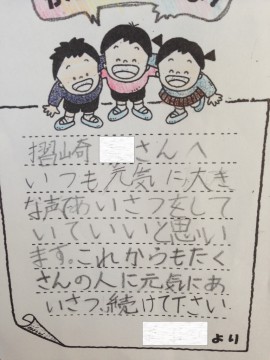 摺崎 さんへ
いつも元気に大き
な声であいさつをして
いていいと思い
ます。これからもたく
さんの人に元気にあ
いさつ続けて下さい
より